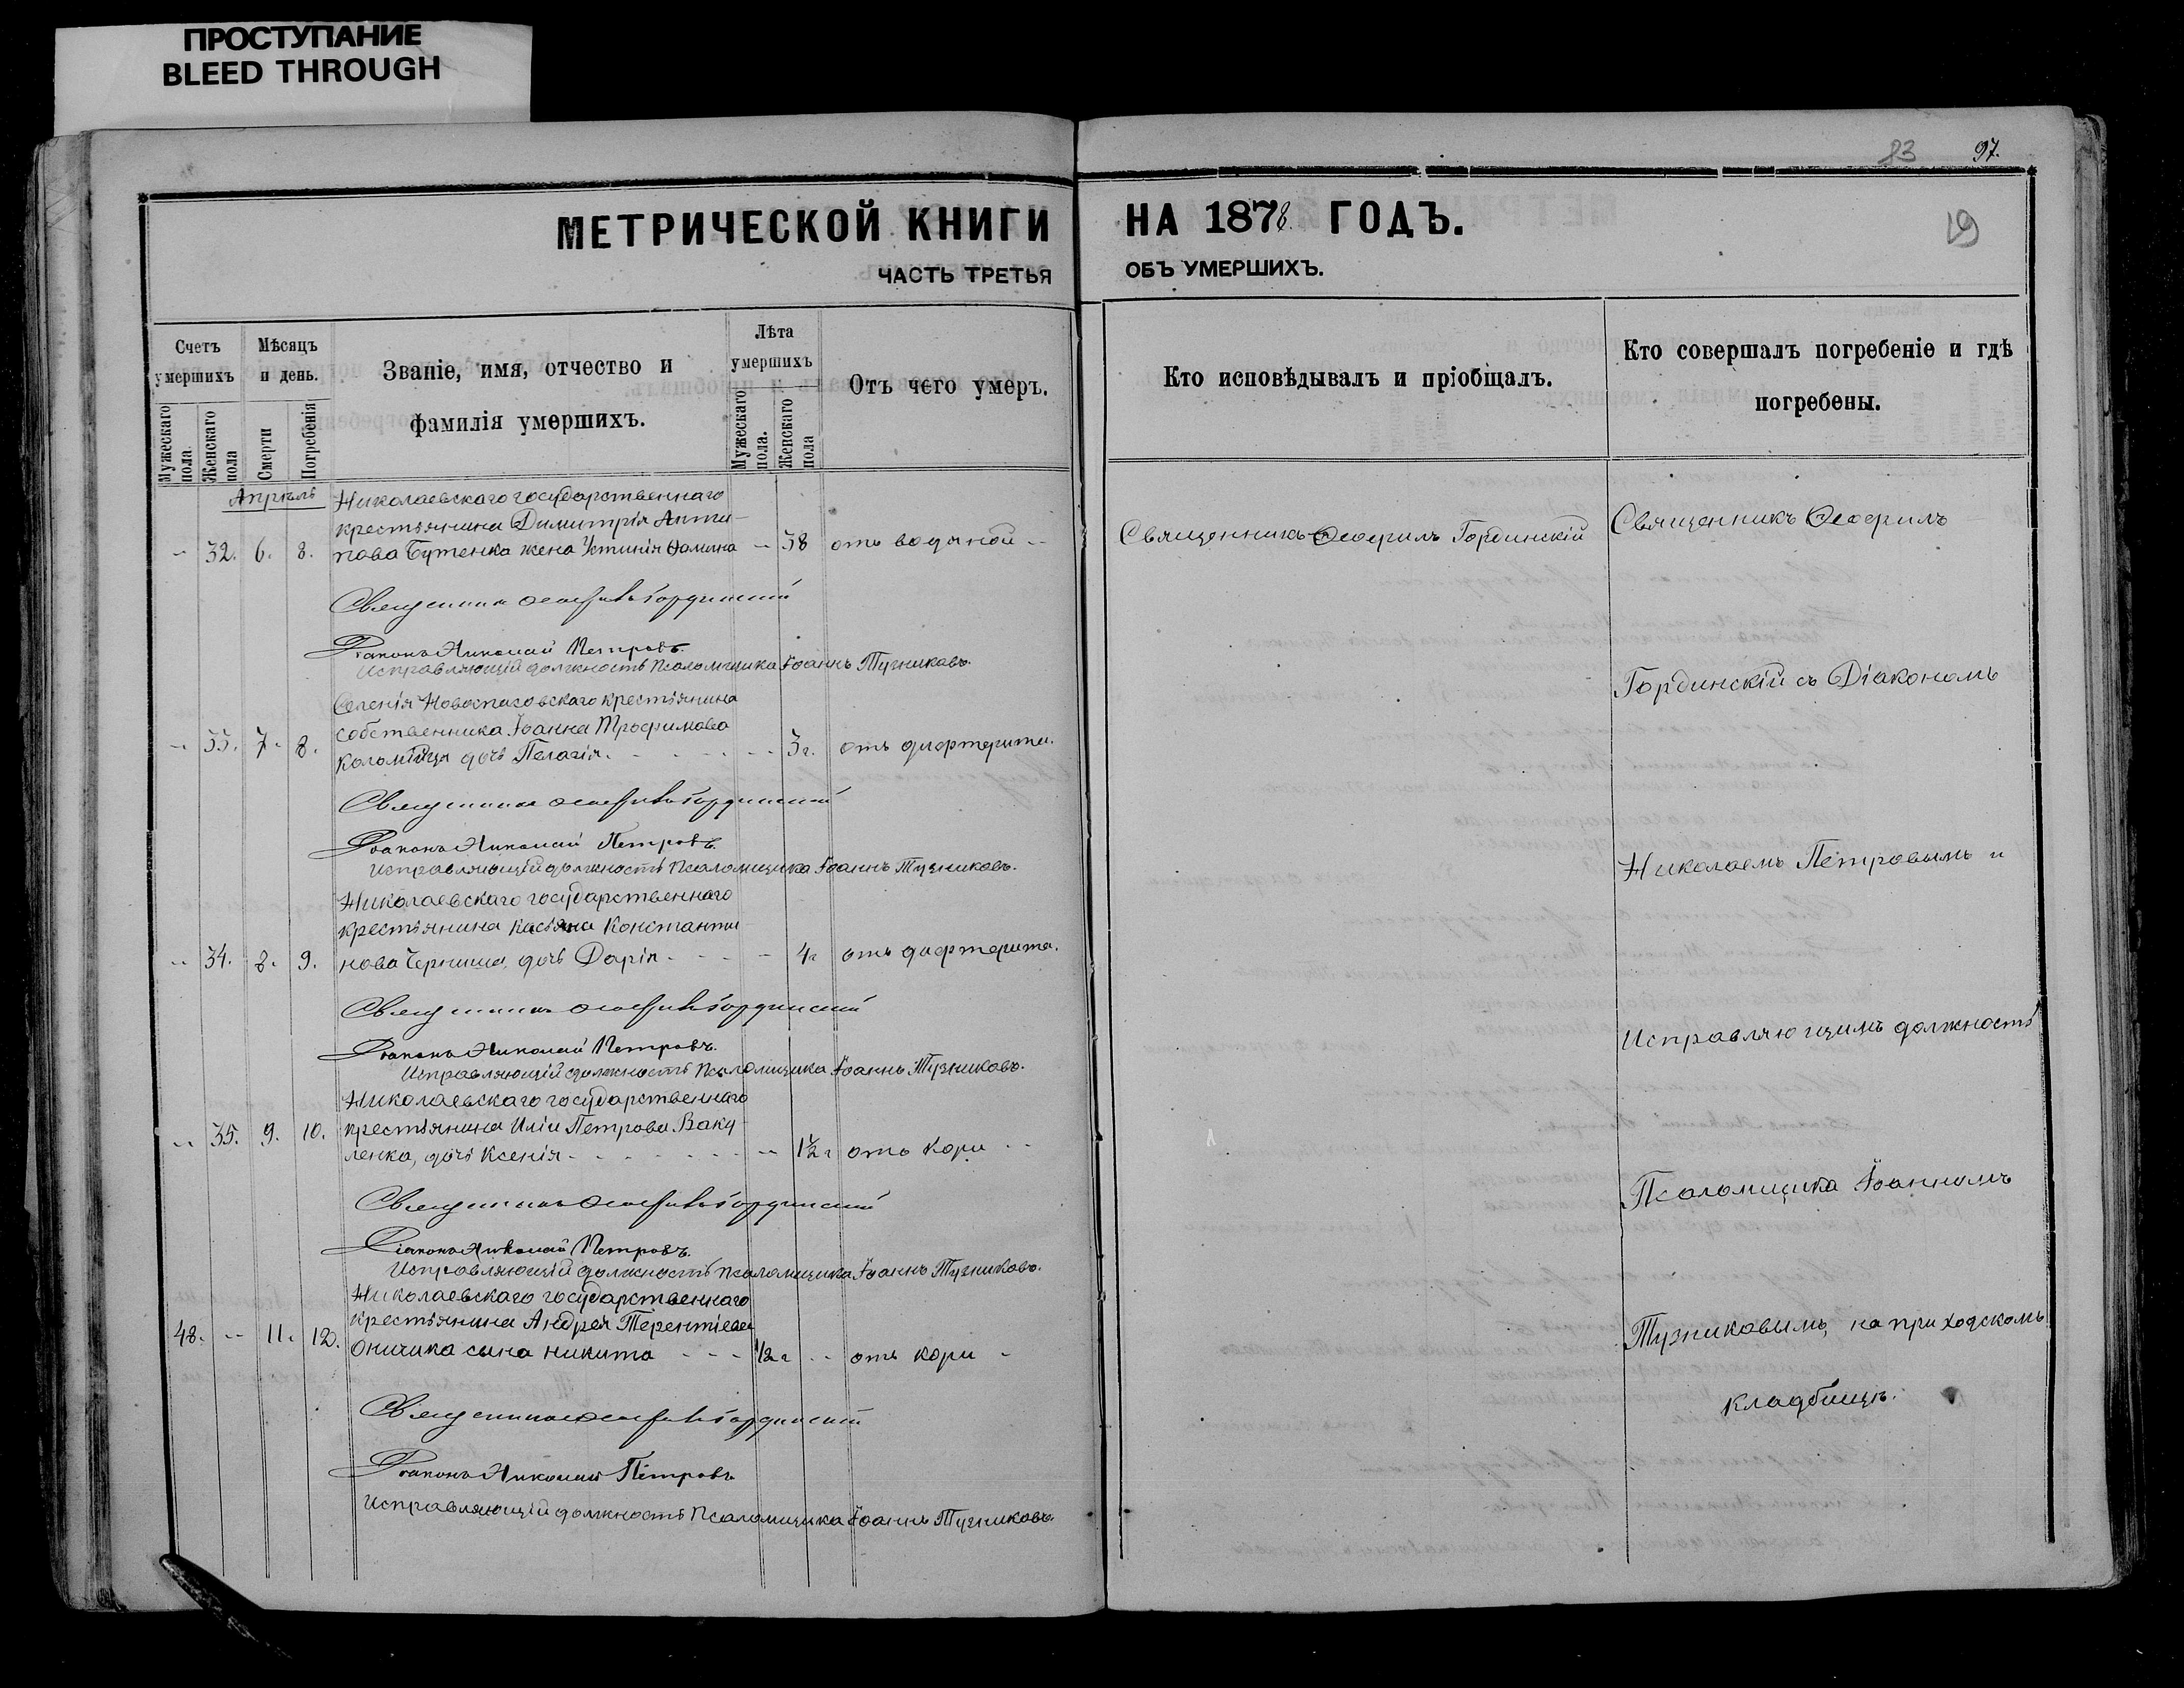 ПРОСТУПАНИЕ
BLEED THROUGH
83 97.
19
МЕТРИЧЕСКОЙ КНИГИ
ЧАСТЬ ТРЕТЬЯ
Счетъ умершихъ
Мѣсяцъ и день.
Званіе, имя, отчество и
фамилія умершихъ.
Лѣта умершихъ
Отъ чего умеръ.
Мужескаго пола
Женскаго пола
Смерти
Погребенія
Мужескаго пола.
Женскаго пола
Апрѣль
Николаевскаго государственнаго
крестьянина Димитрія Анти-
32. 6. 8. пова Бутенка жена Устинія 38 отъ водяной
Священникъ Ѳеофилъ Гординскій
Діаконъ Николай Петровъ.
Исправляющій должность Псаломщика Іоаннъ Тузниковъ.
Селенія Новоспасовскаго крестьянина
собственника Іоанна Трофимова
33. 7. 8. Коломійца дочь Пелагія. 3 г. отъ дифтерита.
Священникъ Ѳеофилъ Гординскій
Діаконъ Николай Петровъ.
Исправляющій должность Псаломщика Іоаннъ Тузниковъ.
Николаевскаго государственнаго
крестьянина Касьяна Константи
34. 8. 9. нова дочь Дарія 4 г отъ дифтерита.
Священникъ Ѳеофилъ Гординскій
Діаконъ Николай Петровъ.
Исправляющій должность Псаломщика Іоаннъ Тузниковъ.
Николаевскаго государственнаго
крестьянина Иліи Петрова Баку
35. 9. 10. ленка, дочь Ксенія 1½ г отъ кори
Священникъ Ѳеофилъ Гординскій
Діаконъ Николай Петровъ.
Исправляющій должность Псаломщика Іоаннъ Тузниковъ.
Николаевскаго государственнаго
крестьянина Андрея Терентіева
48. 11. 12. сына Никита ½ г отъ кори
Священникъ Ѳеофилъ Гординскій
Діаконъ Николай Петровъ
Исправляющій должность Псаломщика Іоаннъ Тузниковъ
НА 1878. ГОДЪ.
ОБЪ УМЕРШИХЪ.
Кто исповѣдывалъ и пріобщалъ.
Кто совершалъ погребеніе и гдѣ
погребены.
Священникъ Ѳеофилъ Гординскій
Священникъ Ѳеофилъ
Гординскій съ Діакономъ
Николаемъ Петровымъ и
Исправляющимъ должность
Псаломщика Іоанномъ
Тузниковымъ, на приходскомъ
кладбищѣ.